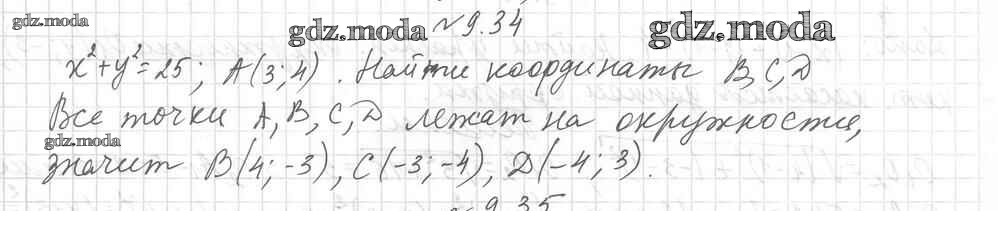 gdz.moda
gdz.moda
№ 9.34
gdz.moda
x²+y²=25; A(3; 4). Найти координаты B, C, D
Все точки A, B, C, D лежат на окружности,
gdz.moda
значит B(4; -3), C(-3; -4), D(-4; 3).
№ 9.35